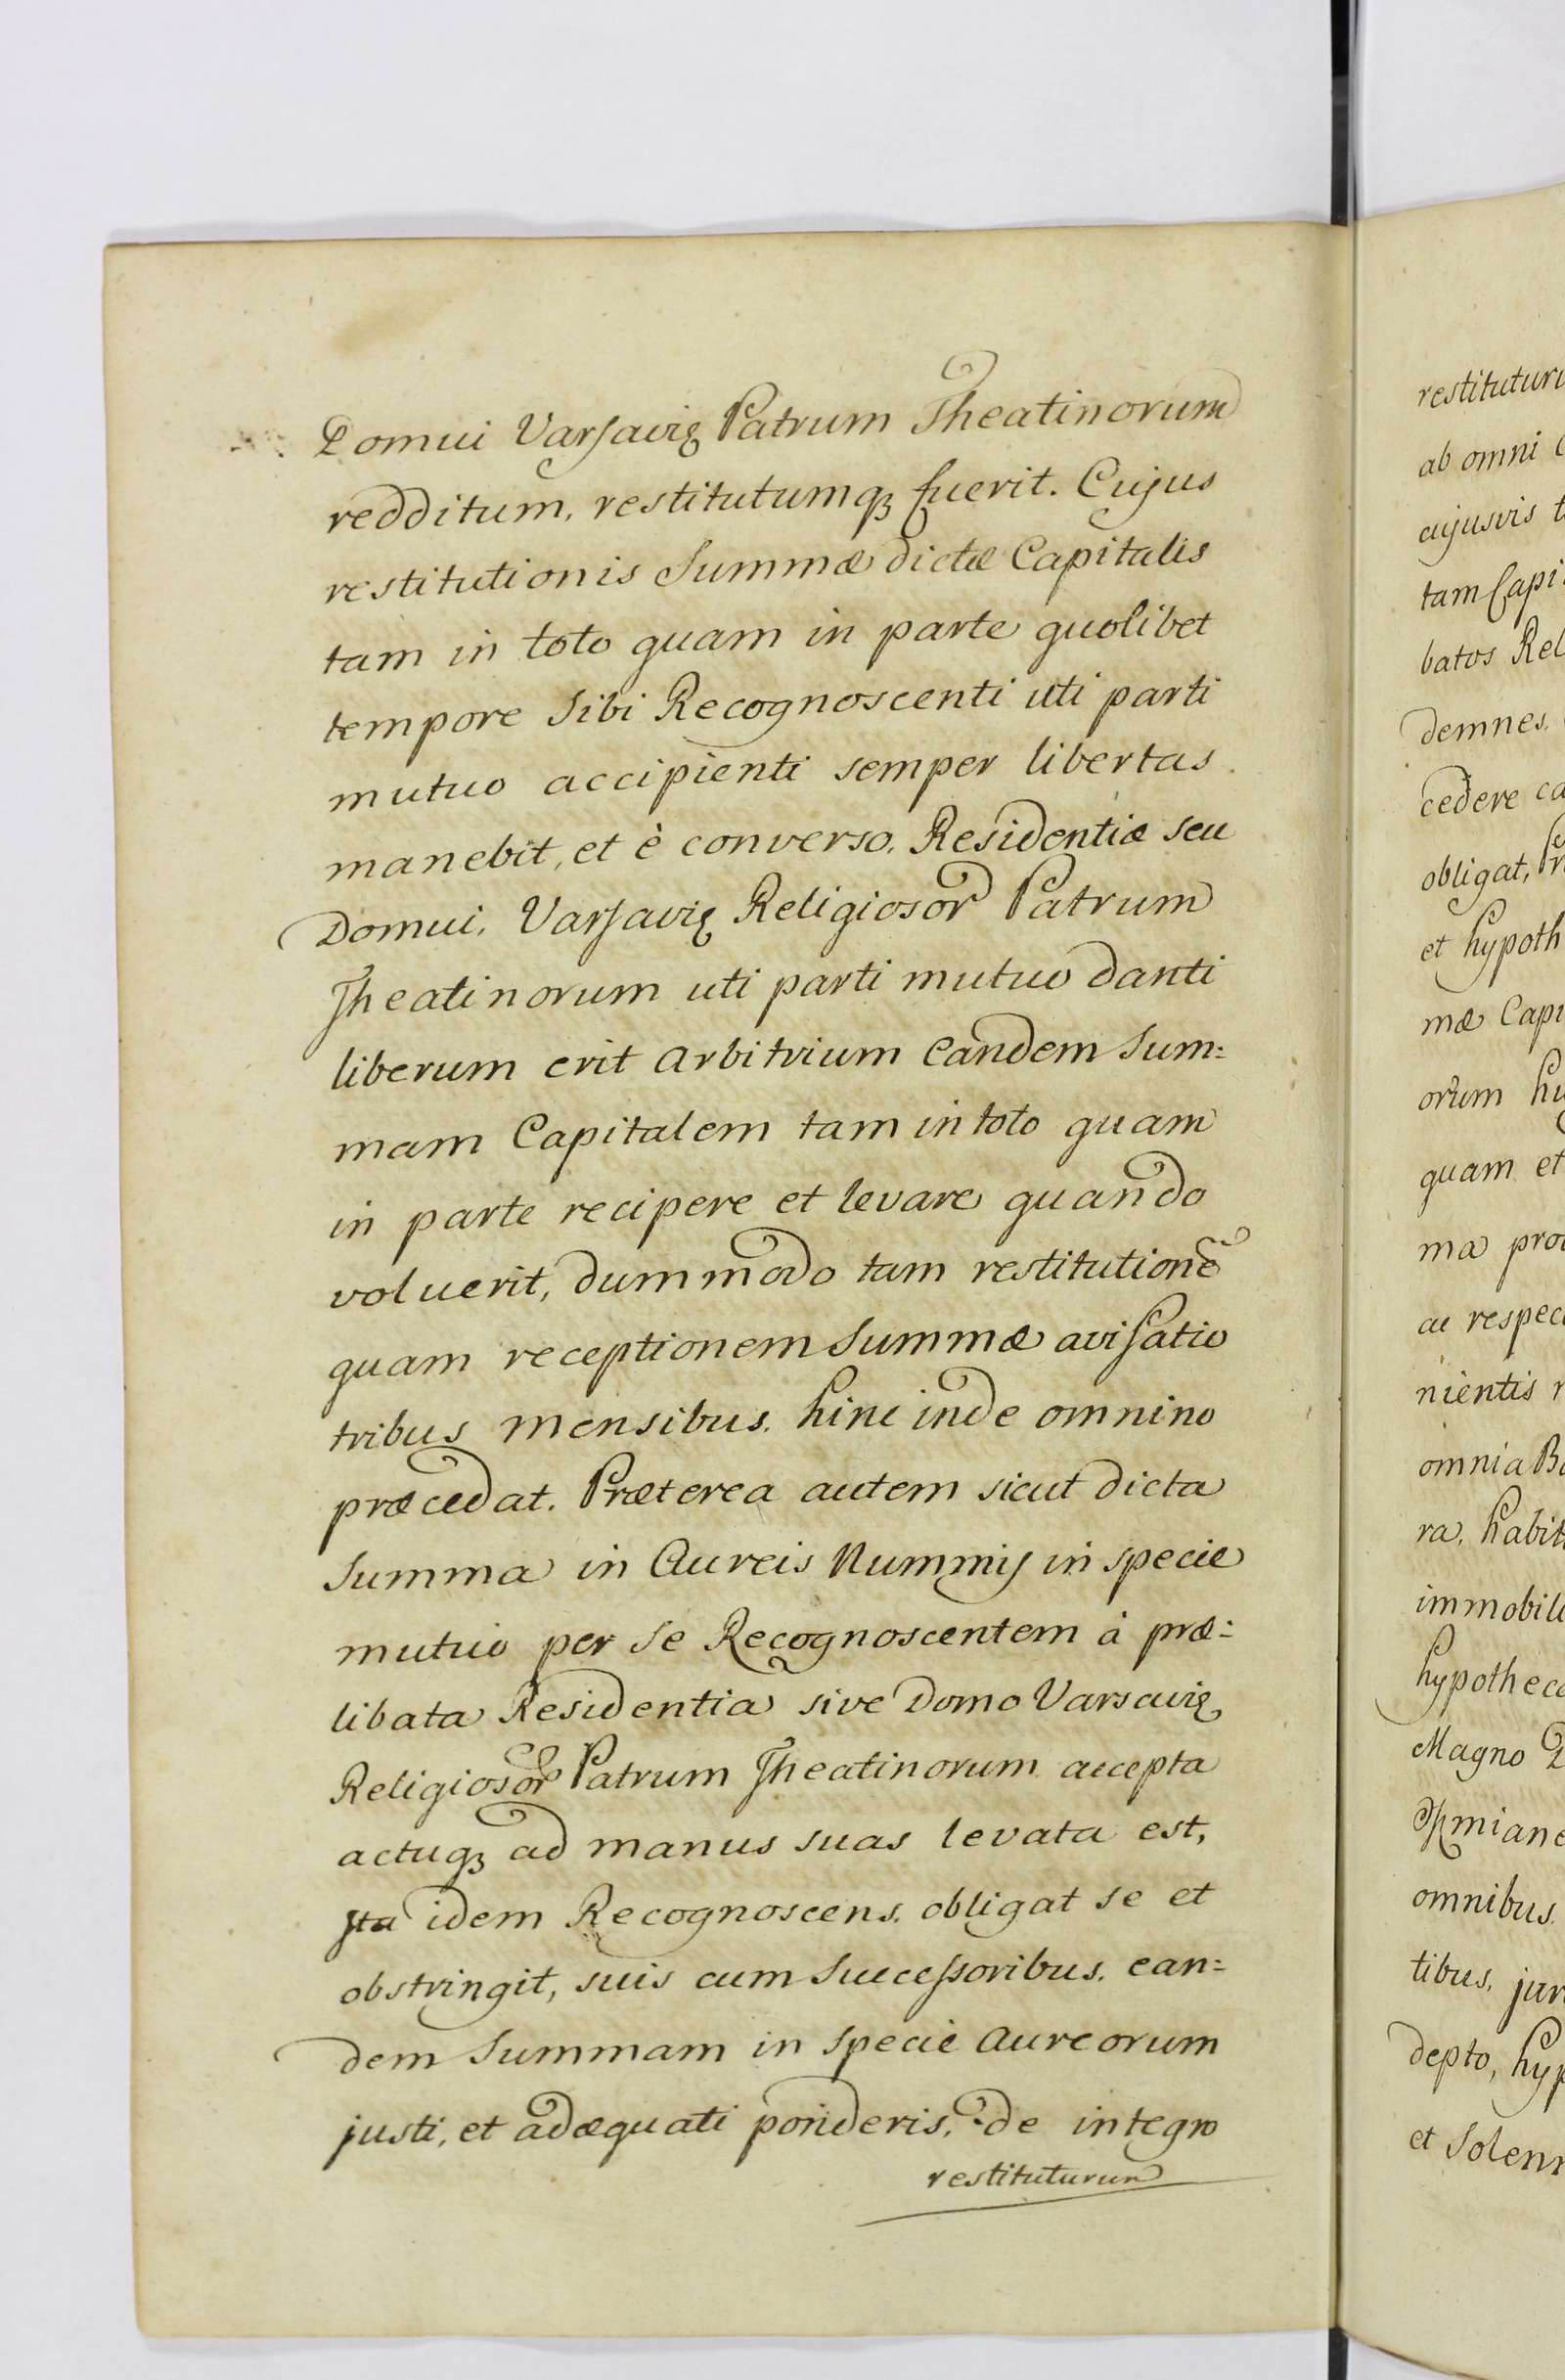 Domui Varsavię Patrum Theatinorum
redditum, restitutumqꝫ fuerit. Cujus
restitutionis Summæ dictæ Capitalis
tam in toto quam in parte quolibet
tempore Sibi Recognoscenti uti parti
mutuo accipienti semper libertas
manebit, et è converso, Residentiæ seu
Domui, Varsavię Religiosor̃ Patrum
Theatinorum uti parti mutuo danti
liberum erit arbitrium eandem Sum=
mam Capitalem tam in toto quam
in parte recipere et levare quando
voluerit, dummodo tam restitutionẽ
quam receptionem Summæ avisatio
tribus mensibus, hinc inde omnino
præcedat. Præterea autem sicut dicta
Summa in Aureis Nummis in specie
mutuo per se Recognoscentem à præ=
libata Residentia sive Domo Varsavię
Religiosor̃ Patrum Theatinorum accepta
actuqꝫ ad manus suas levata est,
Ita idem Recognoscens, obligat se et
obstringit, suis cum Successoribus, ean=
dem Summam in Specie Aureorum
justi, et adæquati ponderis, de integro
restituturum
restitutur
ab omni
cujusvis
tam Capi
batos Rel
demnes,
cedere ca
obligat,
et hypoth
mæ Capi
orum hu
quam et
ma pro
ac respec
nientis
omnia Bo
ra, habit
immobil
hypothec
Magno
Oszmian
omnibus,
tibus, jur
depto, hyp
et Solen